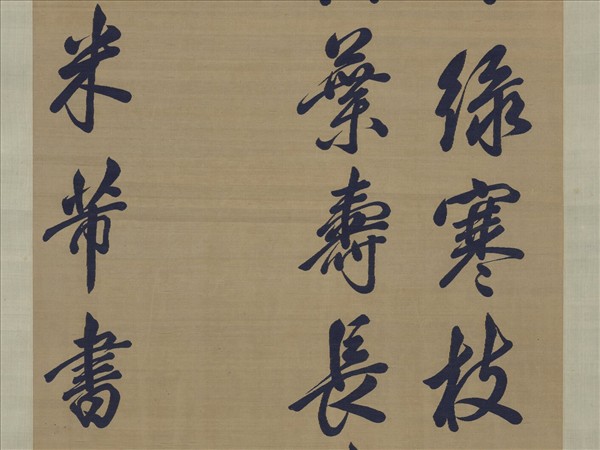 綠寒枝
葉壽長
米芾書